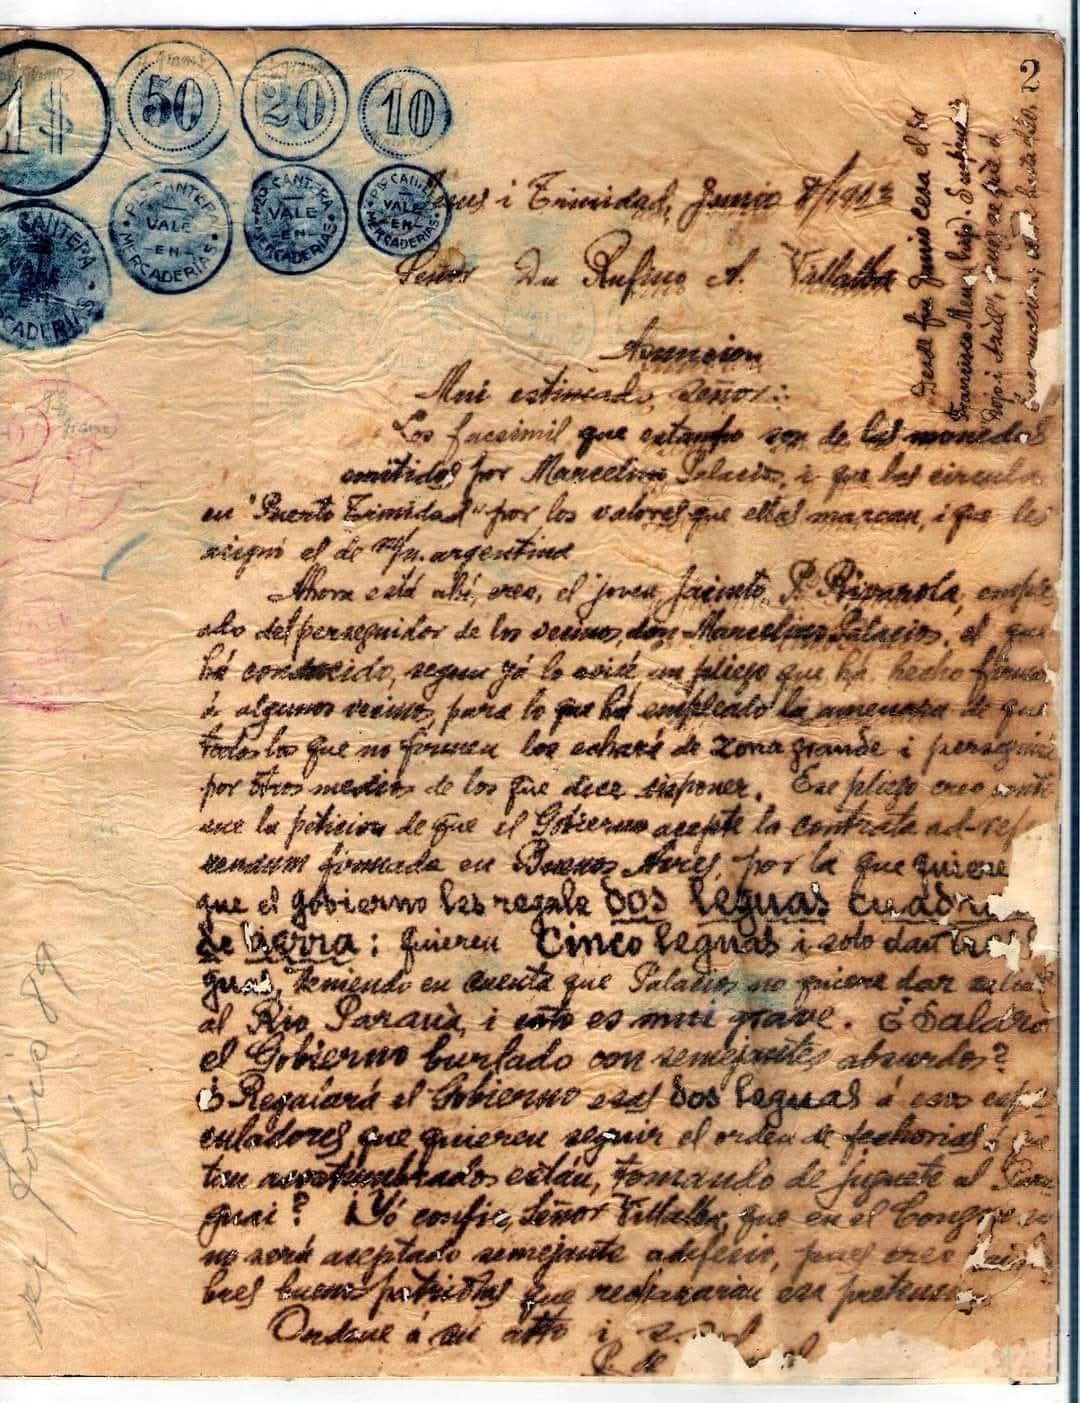 2
1$ 50 20 10
PIO CANTERA VALE EN MERCADERIAS
PIO CANTERA VALE EN MERCADERIAS
PIO CANTERA VALE EN MERCADERIAS
CANTERA VALE EN MERCADERIAS
Jesus i Trinidad, Junio 8/1913
Señor Dn Rufino A. Villalba
Asuncion
Mui estimado señor:
Los facsimil que estampo son de las monedas
emitidas por Marcelino Palacios, i que las circula
en "Puerto Trinidad" por los valores que ellas marcan, i que les
asignó el de m/n. argentina
Ahora está ahí, creo, el joven Jacinto P. Rivarola, emple
ado del perseguidor de los vecinos, don Marcelino Palacios, el que
há conducido, segun yá lo avisé un pliego que há hecho firmar
á algunos vecinos, para lo que há empleado la amenaza de que
todos los que no firmen los echará de zona grande i perseguirá
por otros medios de los que dice disponer. Ese pliego creo conti
ene la peticion de que el Gobierno acepte la contrata ad-refe
rendum firmada en Buenos Aires, por la que quiere
que el gobierno les regale dos leguas cuadra
de tierra: quieren Cinco leguas i solo dan tres le
guas, teniendo en cuenta que Palacios no quiere dar salida
al Rio Paraná, i esto es mui grave. ¿Saldrá
el Gobierno burlado con semejantes absurdos?
¿Regalará el Gobierno esas dos leguas á esos espe
culadores que quieren seguir el orden de fechorias á que
tan acostumbrados están, tomando de juguete al Para
guai? ¡Yó confio, Señor Villalba, que en el Congreso
no será aceptado semejante adefesio, pues creo
bres buenos patriotas que rechazarian esa pretens
Ordene á su atto i s.
P. de
Desde fin Junio cesa el Sr
Francisco
Rojo i Azul",
ver folio 89